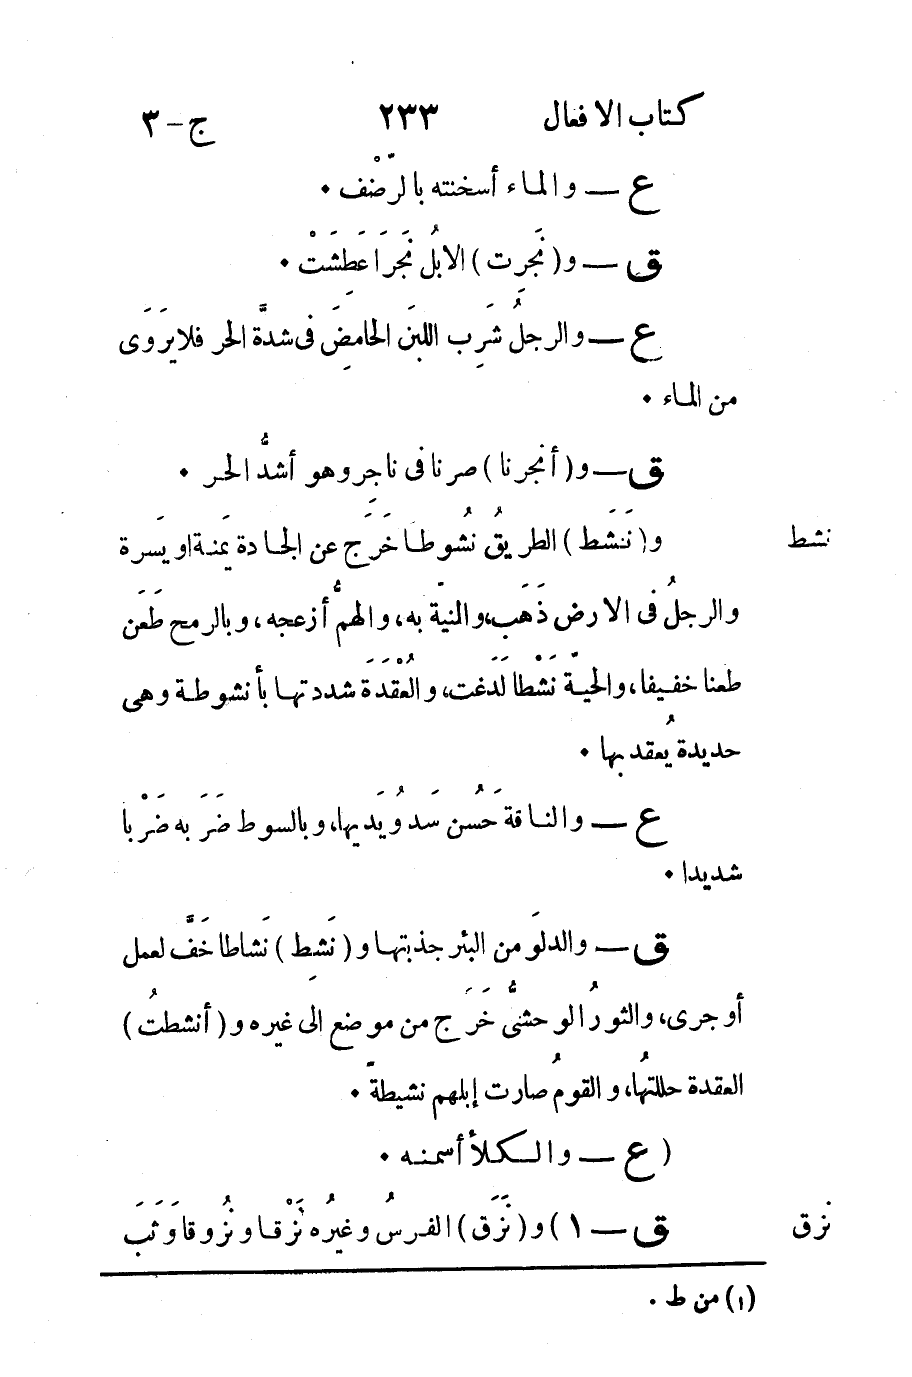 كتاب الافعال ٢٣٣ ج-٣
ع — والماء أسخنته بالرّضْف ٠
ق — و(نَجَرِت) الابلُ نَجَرَا عَطِشَتْ ٠
ع — والرجلُ شَرِب اللبَن الحامِضَ فى شدَّة الحر فلا يرَوَى
من الماء ٠
ق — و(أنجرنا) صرنا فى ناجِر وهو أشدُّ الحر ٠
نشط و(نَشَط) الطريقُ نُشُوطا خَرَج عن الجادة يَمنة او يَسرة
والرجلُ فى الارض ذَهَب، والمنيّة به، والهمُّ أزعجه، وبالرمح طَعَن
طعنا خفيفا، والحيّة نَشْطا لَدَغت، والعُقْدَة شددتها بأنشوطة وهى
حديدة يُعقد بها ٠
ع — والناقةَ حَسُن سَدوُ يَديها، وبالسوط ضَرَبه ضَرْبا
شديدا ٠
ق — والدلوَ من البئر جذبتها و(نَشِط) نَشاطا خَفَّ لعمل
أو جرى، والثورُ الوحشىُّ خَرَج من موضع الى غيره و(أنشطتُ)
العقدة حللتُها، والقومُ صارت إبلهم نشيطةّ ٠
(ع — والكلأ أسمنه ٠
نزق ق — ١) و(نَزَق) الفرسُ وغيرُه نَزْقا ونُزُوقا وَثَبَ
(١) من ط ٠